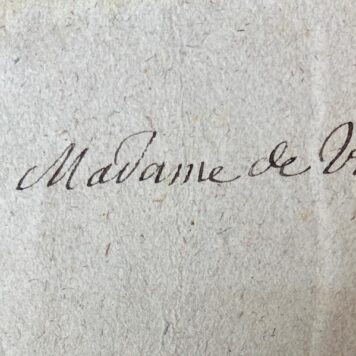 Madame de